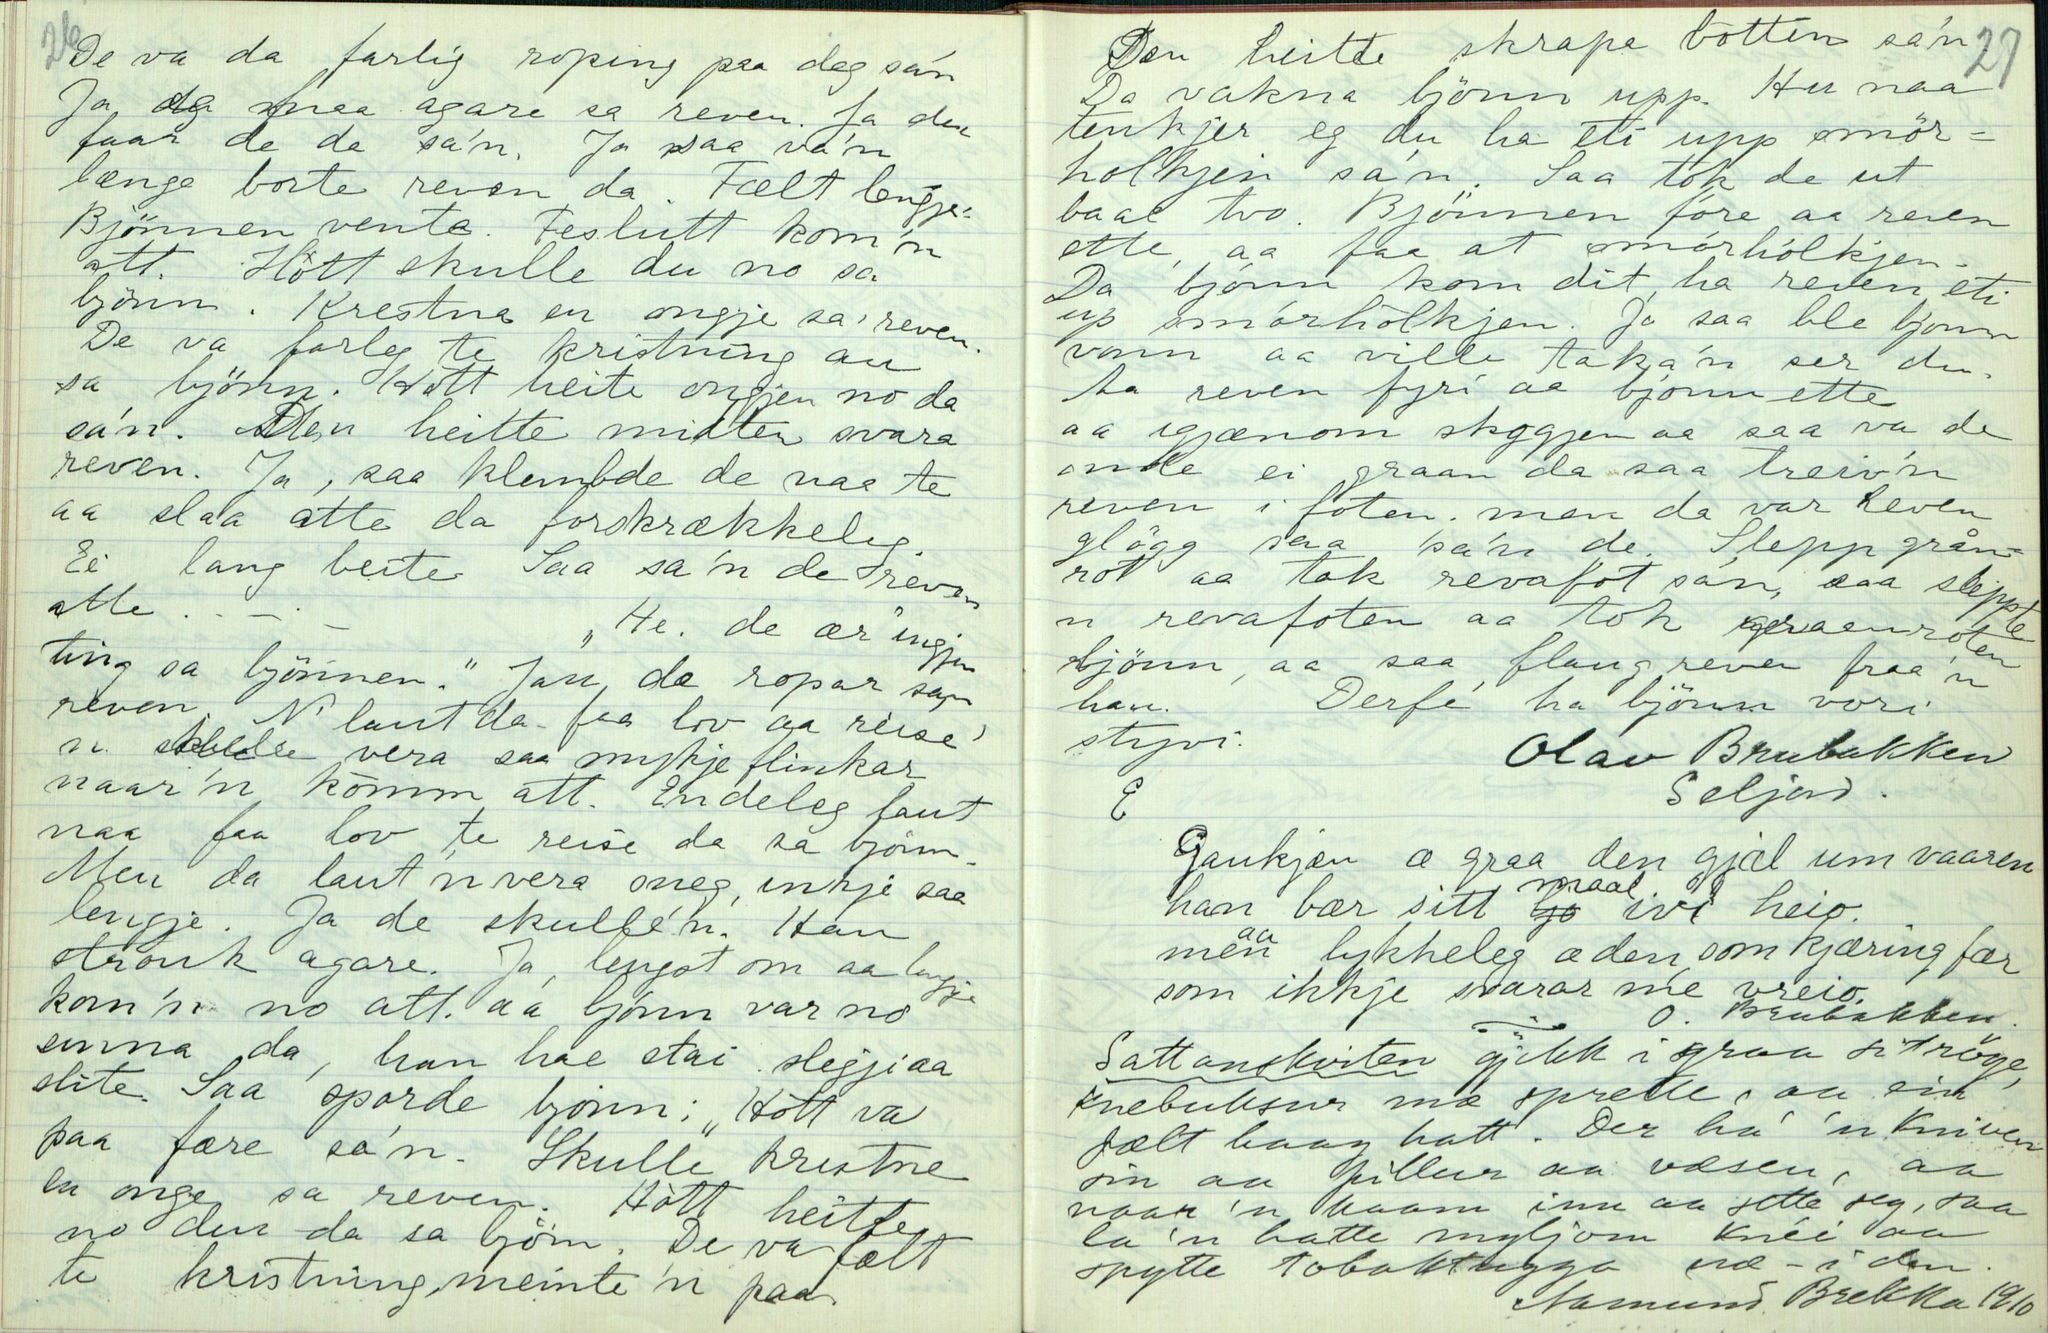 26
De va da farlig roping paa deg sa'n
Ja da maa agare sa reven. Ja den
faar de da sa'n. Ja saa va'n
længe borte reven da. Fælt lengje
Bjönnen venta. Teslutt kom'n
att. Hött skulle du no sa
björn. Krestna en ongje sa reven.
De va farleg te kristning au
sa bjönn. Hött heite ongjen no da
sa'n. Den heitte midten svara
reven. Ja, saa klembde de naa te
aa slaa atte da forskrækkeleg.
Ei lang beite Saa sa'n de reven
atte. — —
"He. de ær ingjen
ting sa bjönnen." Jau de ropar sa
reven. N laut da faa lov aa reise
n skulde vera saa mykje flinkar
naar'n komm att. Endeleg faut
naa faa lov te reise da sa bjönn.
Men da laut'n vera sneg, inkje saa
lengje. Ja de skulle'n. Han
strauk agare. Ja, lengst om aa lengje
kom'n no att. aa bjönn var no
sinna da, han hae stai slegji aa
slite. Saa sporde bjönn: "Hött va
paa fære sa'n. Skulle kristne
en onge sa reven. Hött heitte
no den da sa bjönn. De va fælt
te kristning, meinte'n paa.
27
Den heitte skrape botten sa'n
Da vakna bjönn upp. Hu naa
tenkjer eg du ha eti upp smör=
holkjen sa'n. Saa tok de ut
baae tvo. Bjönnen före aa reven
ette, aa faa at smörhölkjen.
Da bjönn kom dit, ha reven eti
up smörhölkjen. Ja saa ble bjönn
vonn aa ville taka'n ser du.
Aa reven fyri aa bjönn ette
aa igjænom skogjen aa saa va de
onde ei graan da saa treiv'n
reven i foten. men da var reven
glögg saa sa'n de. Slepp grån=
rot aa tak revafot sa'n, saa sleppte
n revafoten aa tok graenroten
bjönn, aa saa flaug reven fraa'n
han. Derfe' ha bjönn vori
styvi.
Olav Brubakken
Seljord.
E
Gaukjen æ graa den gjæl um vaaren
han bær sitt maal ivi heio.
men aa lykkeleg æ den som kjæring fær
som ikkje svarar me vreio.
O. Brubakken.
Sattanskviten gjekk i graa sitröge,
knebuksur mæ sprette, aa ein
fælt haag hatt. Der ha 'n kniven
sin aa pillur aa væsen, aa
naar 'n kaam inn aa sette seg, saa
la'n hatte myljom knéi aa
spytte tobaktugga næ - i den.
Aamund Brekka 1910